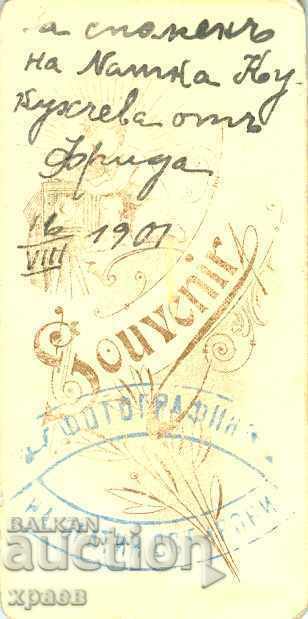 за споменъ
на Натка Ку-
кучева отъ
Фрида
16/VIII 1901
Souvenir
ФОТОГРАФИЯ
BALKAN
auction
храев